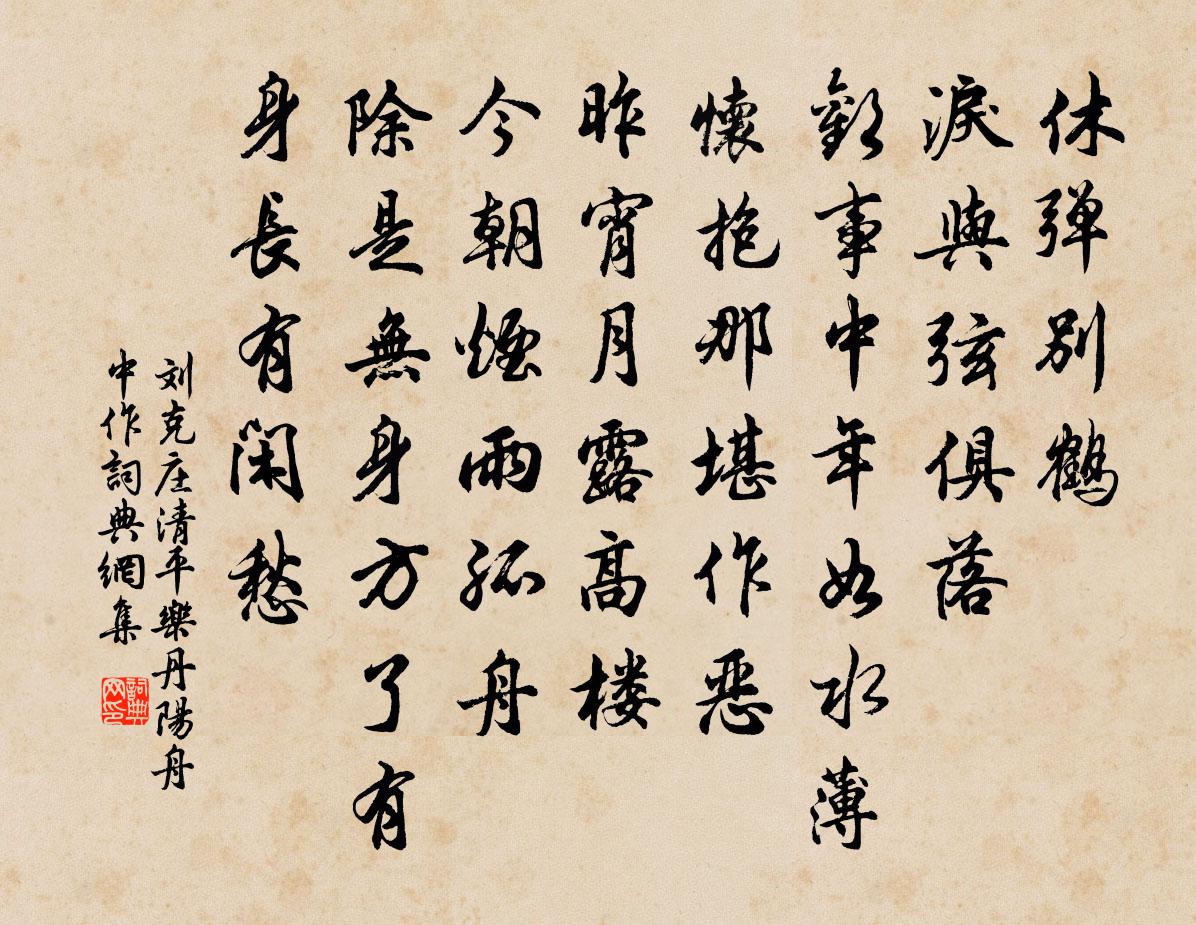 休弹别鹤
淚與弦俱落
歡事中年如水薄
懷抱那堪作恶
昨宵月露高楼
今朝煙雨孤舟
除是無身方了有
身長有閑愁
刘克庄清平樂丹陽舟
中作詞典網集
詞典
网印